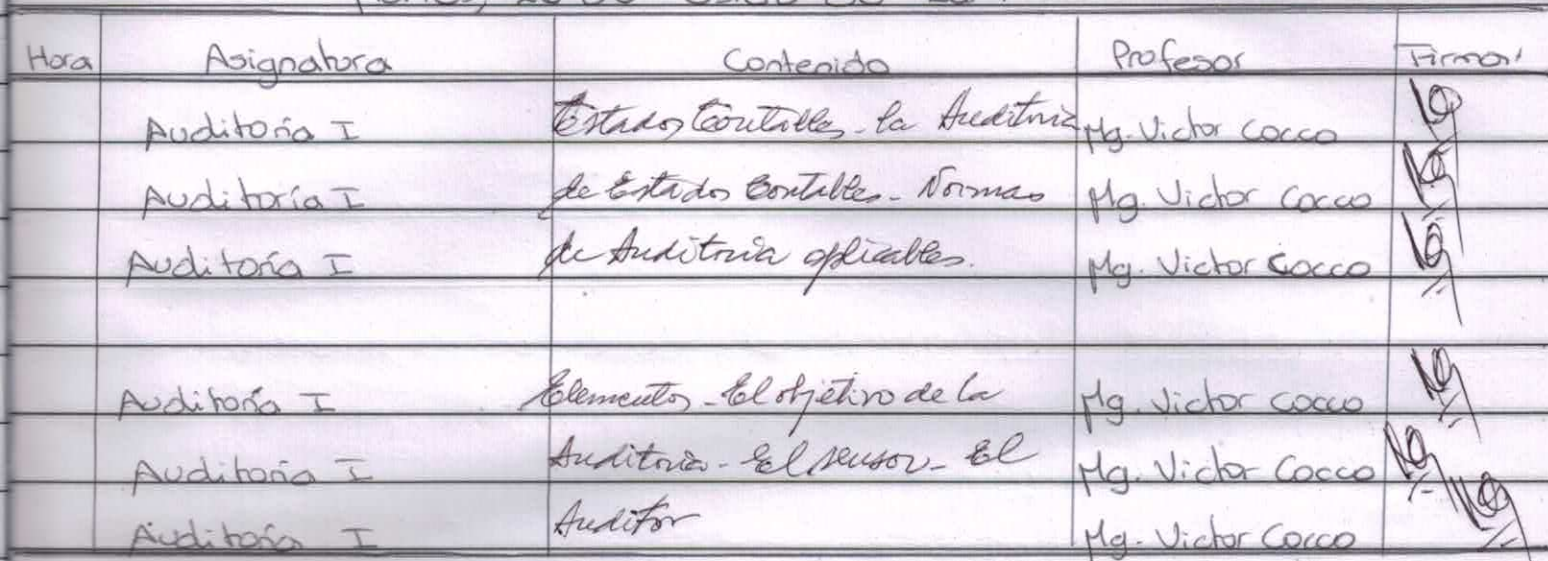 Hora Asignatura Contenido Profesor Firma
Auditoría I Estados Contables - la Auditoria Mg. Victor Cocco
Auditoría I de Estados Contables - Normas Mg. Victor Cocco
Auditoría I de Auditoria aplicables. Mg. Victor Cocco
Auditoría I Elementos - El objetivo de la Mg. Victor Cocco
Auditoría I Auditoria - El sensor - El Mg. Victor Cocco
Auditoría I Auditor Mg. Victor Cocco